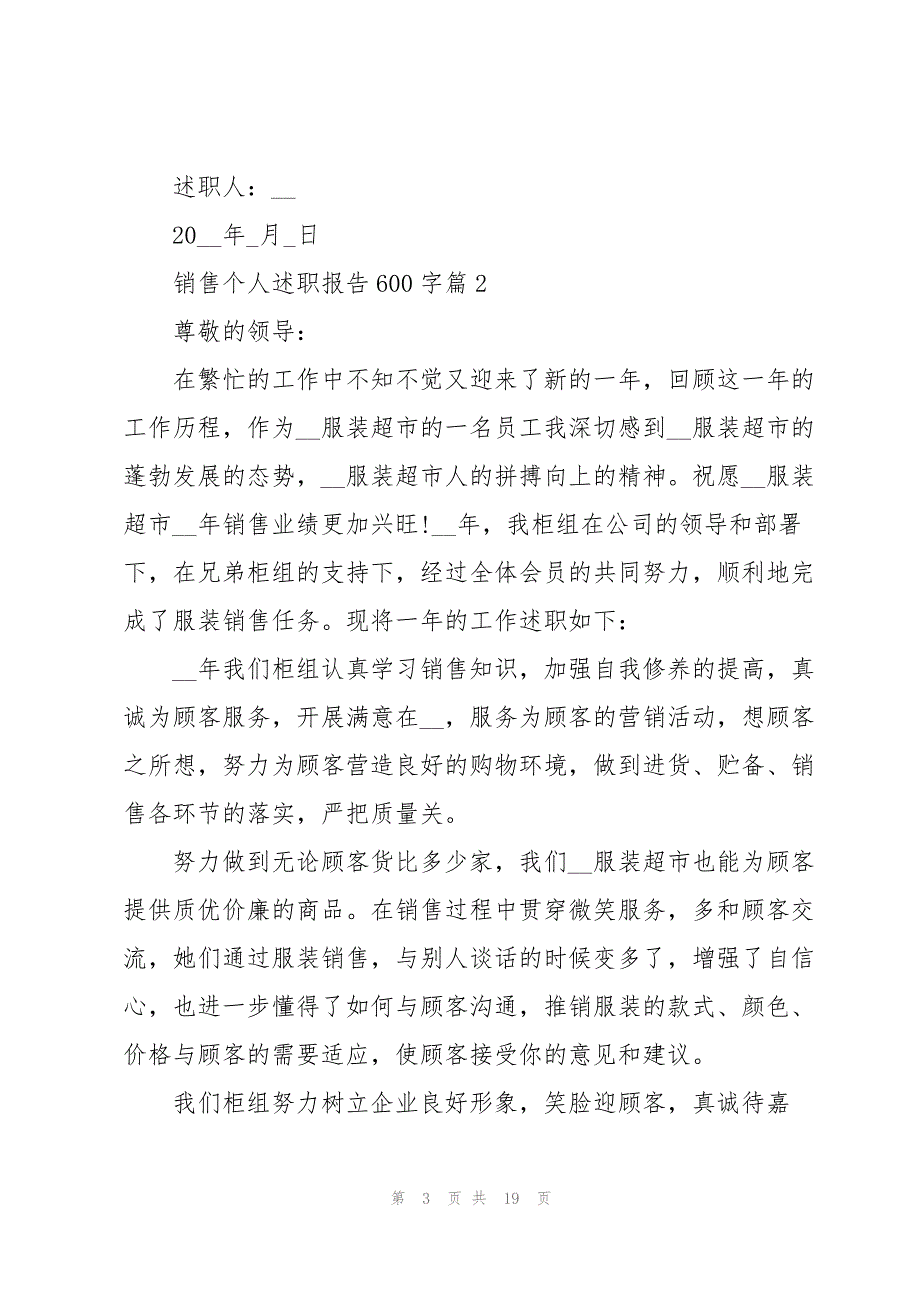 述职人：__
20__年_月_日
销售个人述职报告 600 字篇 2
尊敬的领导：
在繁忙的工作中不知不觉又迎来了新的一年，回顾这一年的
工作历程，作为__服装超市的一名员工我深切感到__服装超市的
蓬勃发展的态势，__服装超市人的拼搏向上的精神。祝愿__服装
超市__年销售业绩更加兴旺!__年，我柜组在公司的领导和部署
下，在兄弟柜组的支持下，经过全体会员的共同努力，顺利地完
成了服装销售任务。现将一年的工作述职如下：
__年我们柜组认真学习销售知识，加强自我修养的提高，真
诚为顾客服务，开展满意在__，服务为顾客的营销活动，想顾客
之所想，努力为顾客营造良好的购物环境，做到进货、贮备、销
售各环节的落实，严把质量关。
努力做到无论顾客货比多少家，我们__服装超市也能为顾客
提供质优价廉的商品。在销售过程中贯穿微笑服务，多和顾客交
流，她们通过服装销售，与别人谈话的时候变多了，增强了自信
心，也进一步懂得了如何与顾客沟通，推销服装的款式、颜色、
价格与顾客的需要适应，使顾客接受你的意见和建议。
我们柜组努力树立企业良好形象，笑脸迎顾客，真诚待嘉
第 3 页 共 19 页